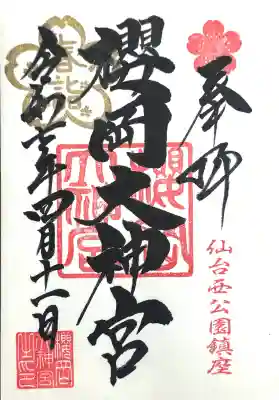 奉拝
仙台西公園鎮座
櫻岡大神宮
櫻岡大神宮
春詣
令和七年四月十一日
櫻岡大神宮之印